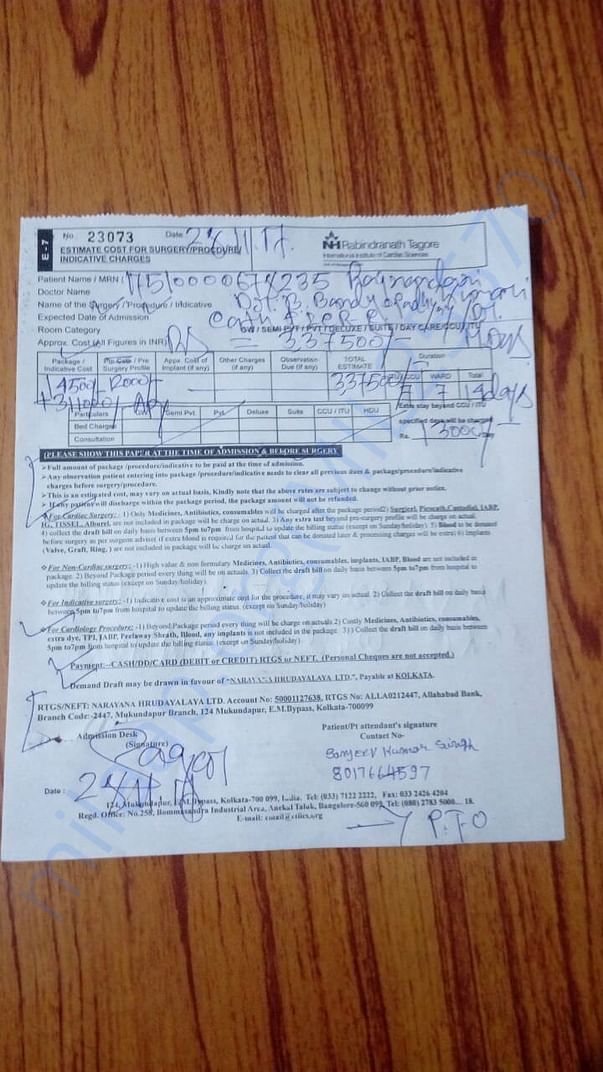 E - 7
No. 23073 Date
ESTIMATE COST FOR SURGERY/PROCDURE/
INDICATIVE CHARGES
NH Rabindranath Tagore
International Institute of Cardiac Sciences
Patient Name / MRN
Doctor Name
Name of the Surgery / Procedure / Indicative
Expected Date of Admission
Room Category GW / SEMI PVT / PVT / DELUXE / SUITE / DAY CARE/CCU/ITU
Approx. Cost (All Figures in INR) RS = 337500/-
Package / Indicative Cost Pre Surgery Profile Appx. Cost of Implant (if any) Other Charges (if any) Observation Due (if any) TOTAL ESTIMATE Duration
CCU WARD Total
14500/- 12000/- 337500/- 7 7 14 days
+311000/-
Particulars Semi Pvt. Pvt. Deluxe Suite CCU / ITU HDU
Extra stay beyond CCU / ITU
Bed Charges
specified days will be charged
Consultation
Rs. 13000/- day
(PLEASE SHOW THIS PAPER AT THE TIME OF ADMISSION & BEFORE SURGERY
➢ Full amount of package /procedure/indicative to be paid at the time of admission.
➢ Any observation patient entering into package /procedure/indicative needs to clear all previous dues & package/procedure/indicative
charges before surgery/procedure.
➢ This is an estimated cost, may vary on actual basis, Kindly note that the above rates are subject to change without prior notice.
➢ If any patient will discharge within the package period, the package amount will not be refunded.
❖ For Cardiac Surgery: - 1) Only Medicines, Antibiotics, consumables will be charged after the package period2) Surgicel, Custodiol, IABP,
TISSEL, are not included in package will be charge on actual. 3) Any extra test beyond pre-surgery profile will be charge on actual.
4) collect the draft bill on daily basis between 5pm to7pm from hospital to update the billing status (except on Sunday/holiday). 5) Blood to be donated
before surgery as per surgeon advise( if extra blood is required for the patient that can be donated later & processing charges will be extra) 6) Implants
(Valve, Graft, Ring, ) are not included in package will be charge on actual.
❖ For Non-Cardiac surgery: -1) High value & non formulary Medicines, Antibiotics, consumables, implants, IABP, Blood are not included in
package. 2) Beyond Package period every thing will be on actuals. 3) Collect the draft bill on daily basis between 5pm to7pm from hospital to
update the billing status (except on Sunday/holiday).
❖ For Indicative surgery: -1) Indicative cost is an approximate cost for the procedure, it may vary on actual. 2) Collect the draft bill on daily basis
between 5pm to7pm from hospital to update the billing status. (except on Sunday/holiday)
❖ For Cardiology Procedure: -1) Beyond Package period every thing will be charge on actuals 2) Costly Medicines, Antibiotics, consumables,
extra dye, TPI, IABP, Peelaway Sheath, Blood, any implants is not included in the package. 3) Collect the draft bill on daily basis between
5pm to7pm from hospital to update the billing status. (except on Sunday/holiday)
Payment:--CASH/DD/CARD (DEBIT or CREDIT) RTGS or NEFT. (Personal Cheques are not accepted.)
Demand Draft may be drawn in favour of "NARAYANA HRUDAYALAYA LTD.", Payable at KOLKATA.
RTGS/NEFT: NARAYANA HRUDAYALAYA LTD. Account No: 50001127638, RTGS No: ALLA0212447, Allahabad Bank,
Branch Code:-2447, Mukundapur Branch, 124 Mukundapur, E.M.Bypass, Kolkata-700099
Admission Desk
(Signature)
Patient/Pt attendant's signature
Contact No-
Sanjeev Kumar Singh
8017664597
Date :
124, Mukundapur, E.M.Bypass, Kolkata-700 099, India. Tel: (033) 7122 2222, Fax: 033 2426 4204
Regd. Office: No.258, Bommasandra Industrial Area, Anekal Taluk, Bangalore-560 099, Tel: (080) 2783 5000... 18.
P.T.O